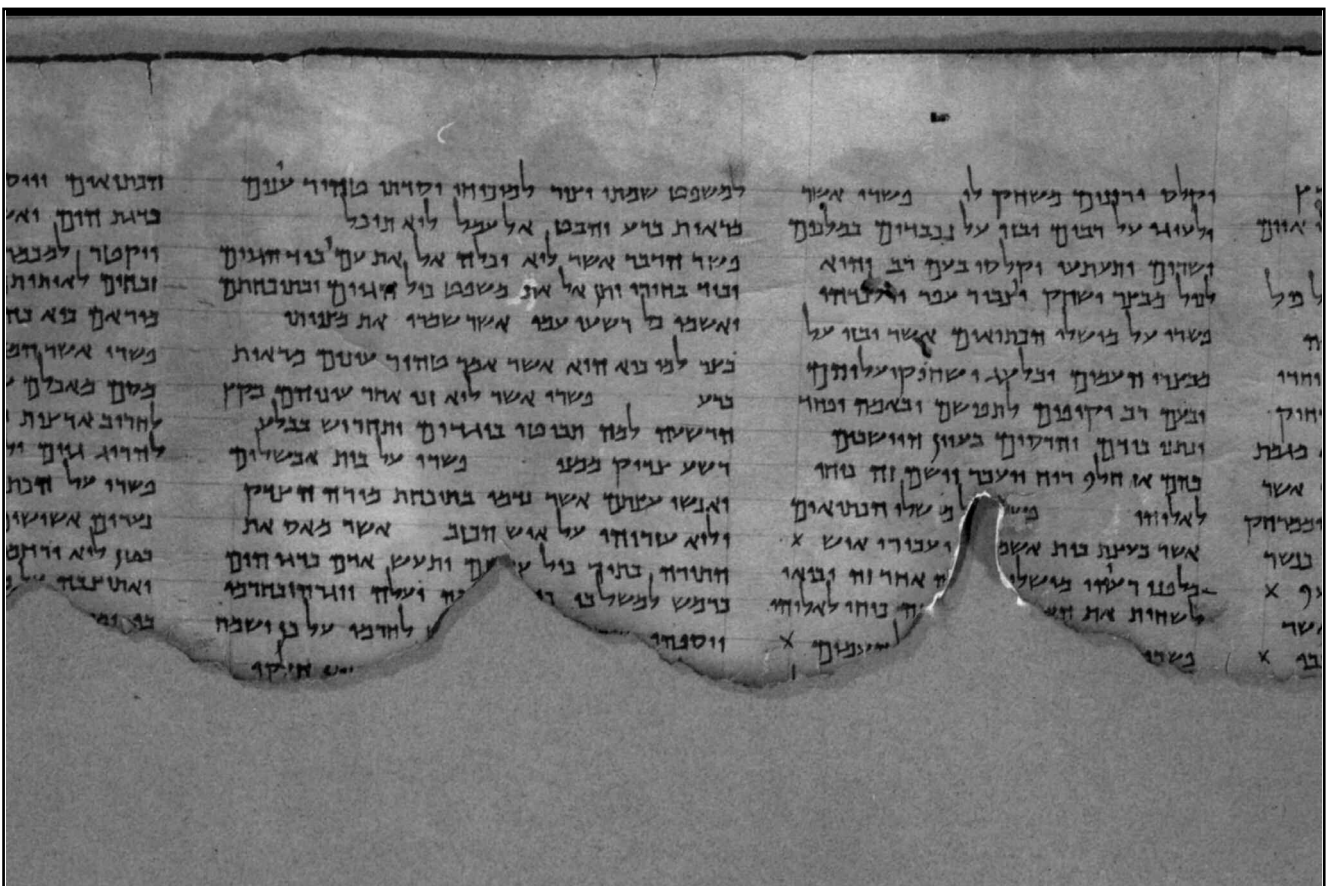 אוים
אשר
כנשר
וקלס ורזנים משחק לו פשרו אשר
ילעיגו על רבים ובזו על נכבדים במלכים
ושרים יתעתעו וקלסו בעם רב והוא
לכול מבצר ישחק ויצבור עפר וילכדהו
פשרו על מושלי הכתיאים אשר יבזו על
מבצרי העמים ובלעג ישחוקו עליהם
ובעם רב יקיפום לתפושם ובאמה ופחד
ינתנו בידם והרסום בעוון היושבים
בהם אז חלף רוח ויעבר וישם זה כוחו
לאלוהו מושלי הכתיאים
אשר בעצת בית יעבירו איש x
מלפני רעיהו אחר זה יבואו
לשחית את כוחו לאלוהו
פשרו העמים x
למשפט שמתו וצור למוכיחו יסדתו טהור עינים
מראות ברע והבט אל עמל לוא תוכל
פשר הדבר אשר לוא יכלה אל את עמו ביד הגוים
וביד בחירו יתן אל את משפט כול הגוים ובתוכחתם
יאשמו כל רשעי עמו אשר שמרו את מצוותו
בצר למו כיא הוא אשר אמר טהור עינים מראות
ברע פשרו אשר לוא זנו אחר עיניהם בקץ
הרשעה למה תביטו בוגדים ותחריש בבלע
רשע צדיק ממנו פשרו על בית אבשלום
ואנשי עצתם אשר נדמו בתוכחת מורה הצדק
ולוא עזרוהו על איש הכזב אשר מאס את
התורה בתוך כול ותעש אדם כדגי הים
כרמש למשל בו יעלה ויגרהו בחרמו
ויספהו לחרמו על כן ישמח
הכתיאים
כדגת הים
ויקטר
זבחים
מוראם
פשרו אשר
מסם מאכלם
לחריב ארצות
להרוג גוים
פשרו על
נערים
בטן לוא